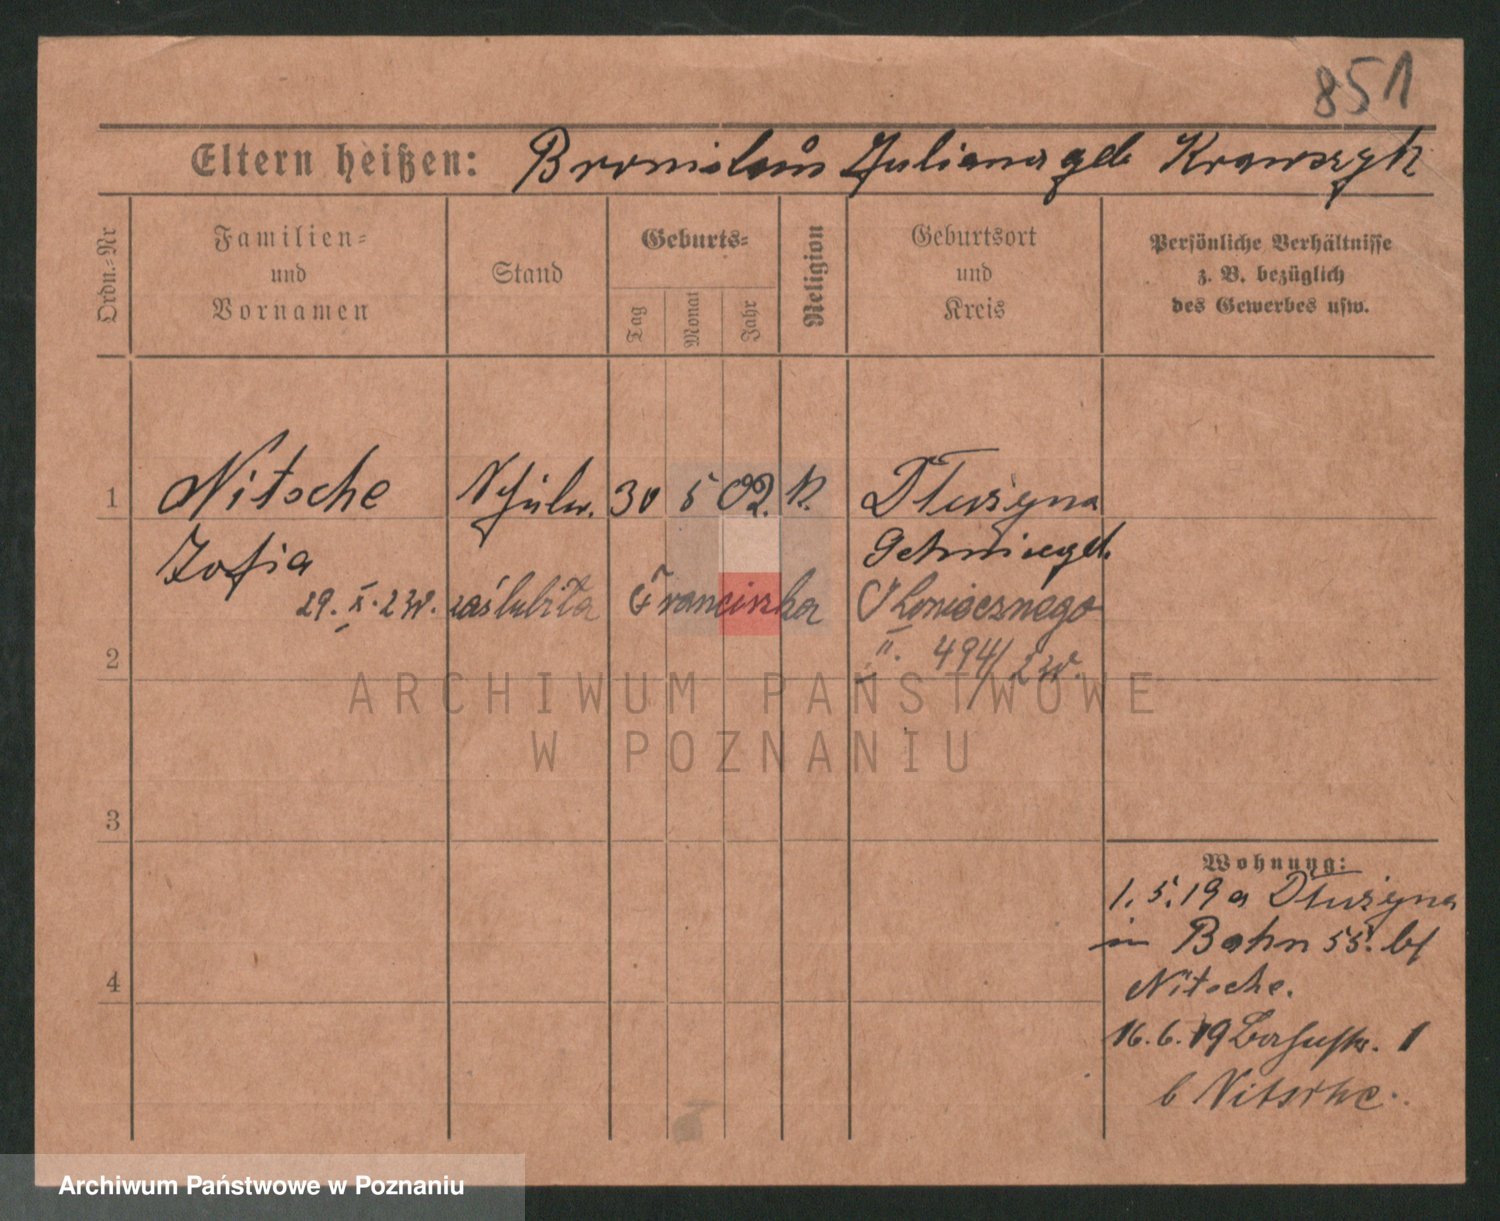 851
Eltern heißen: Bronislaus Juliana geb Krawczyk
Ordn.-Nr
Familien-
und
Vornamen
Stand
Geburts-
Tag
Monat
Jahr
Religion
Geburtsort
und
Kreis
Persönliche Verhältnisse
z. B. bezüglich
des Gewerbes usw.
1 Nitsche Schüler. 30 5 02. K. Dłużyna
Zofia Schmiegel.
29. X. 2 zaślubiła Franciszka Koniecznego
II. 494/2
2
ARCHIWUM PAŃSTWOWE
W POZNANIU
3
Wohnung:
1. 5. 19 a Dłużyna
in Bahn 55. bei
Nitsche.
4
16. 6. 19 1
b Nitsche.
Archiwum Państwowe w Poznaniu